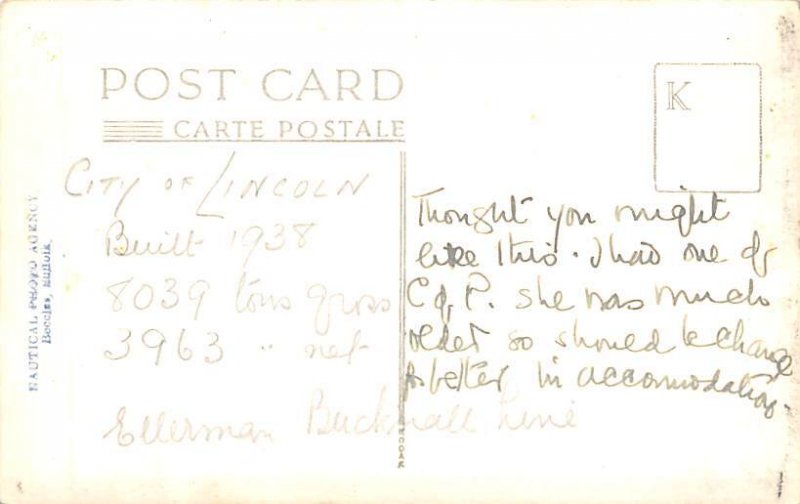 POST CARD
CARTE POSTALE
K
CITY OF LINCOLN
Built 1938
8039 tons gross
3963 " net
Ellerman Bucknall Line
Thought you might
like this. I had one of
C of P. she was much
older so should be change
to better in accommodation.
NAUTICAL PHOTO AGENCY
Beccles, Suffolk.
KODAK